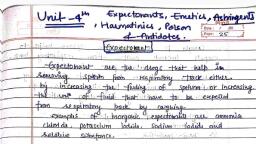 Unit-4th Expectorants, Emetics, Astringents
, Haematinics, Poison
& Antidotes.
Expectorant
- Expectorant are the drugs that help in
removing sputum from respiratory track either
by increasing the fluidity of sputum or increasing
the of fluid that have to be expelled
from respiratory track by
examples of inorganic expectorants are ammonia
chloride, potassium Iodide, Sodium Iodide and
substance.